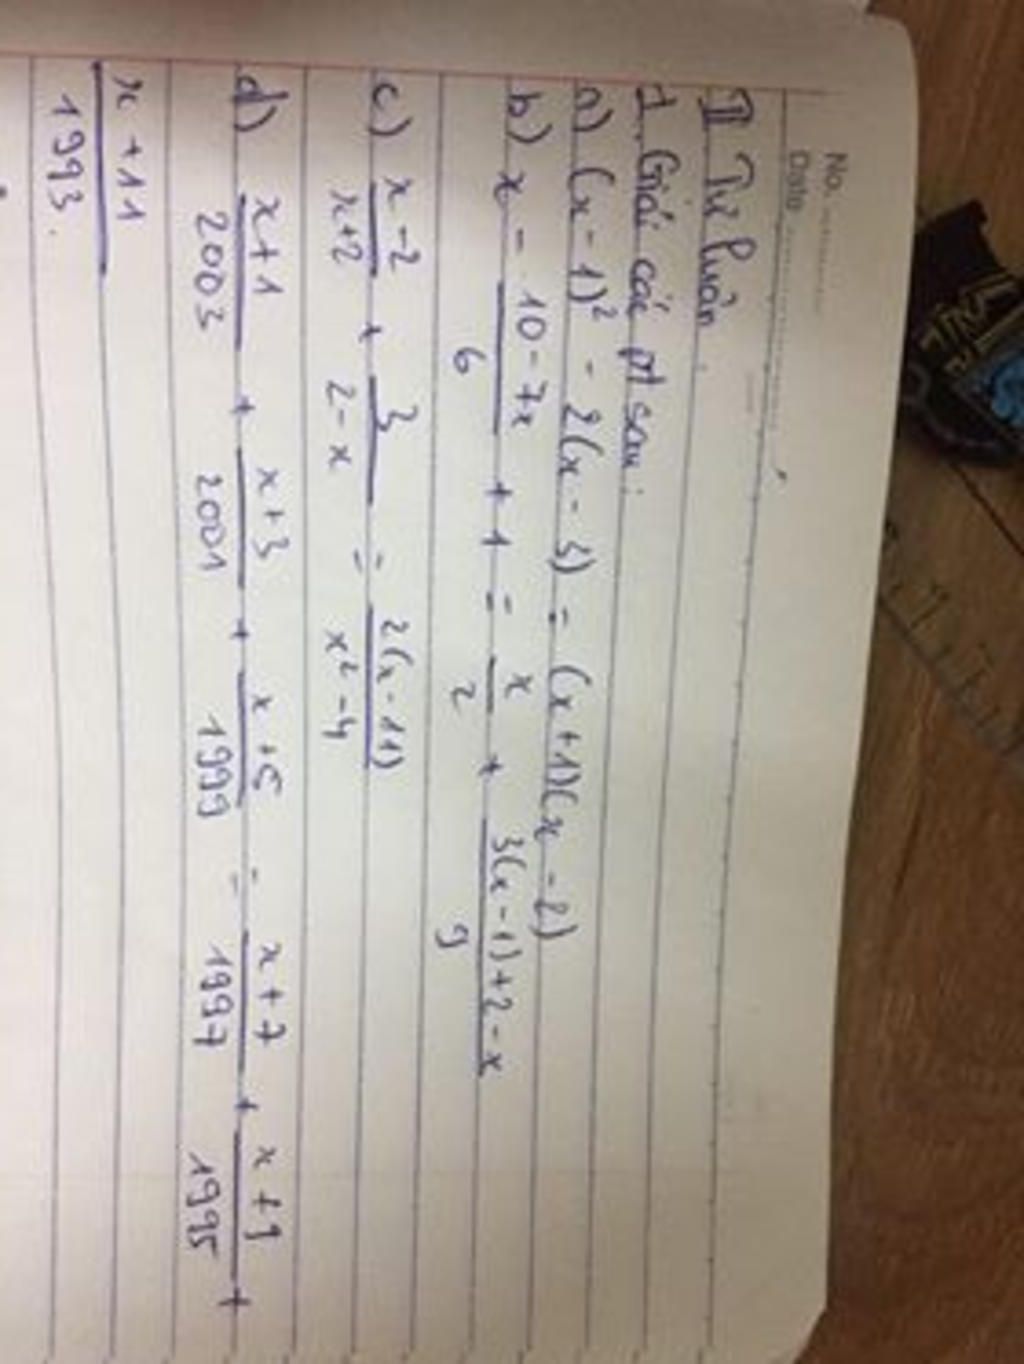 No. ..........
Date ..........
II Tự luận.
1. Giải các pt sau:
a) (x - 1)² - 2(x - 3) = (x + 1)(x - 2)
b) x - (10 - 7x)/6 + 1 = x/2 + (3(x - 1) + 2 - x)/9
c) (x - 2)/(x + 2) + 3/(2 - x) = 2(x - 11)/(x² - 4)
d) (x + 1)/2003 + (x + 3)/2001 + (x + 5)/1999 = (x + 7)/1997 + (x + 9)/1995 +
(x + 11)/1993.